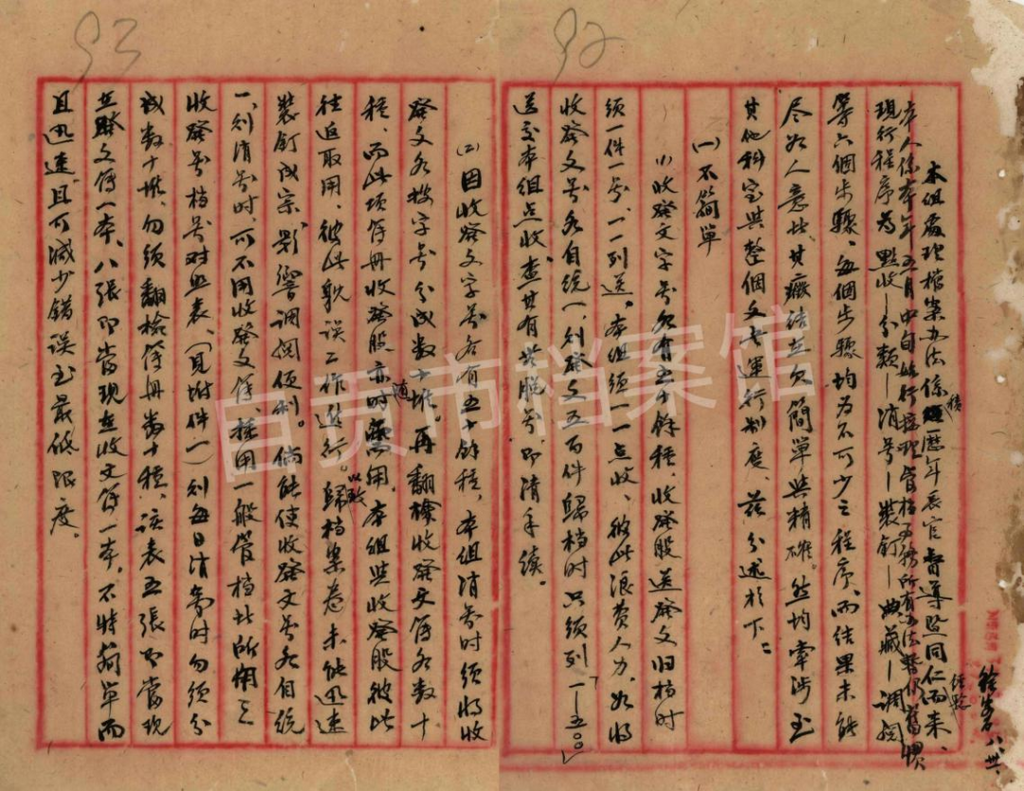 92
本组处理档案办法系积历年长官督导暨同仁经验而来、
本人系本年五月中旬始行接理管档事务所有办法暂仍旧惯
现行程序为点收—分类—消号—装钉—典藏—调阅
等六个步骤、每个步骤均为不可少之程序、而结果未能
尽如人意者其症结在欠简单与精确。然均牵涉至
其他科室与整个文书运行制度、兹分述于下：
(一)不简单
(1)收发文字号各有五十余种、收发股送发文归档时
须一件一号、一一列送。本组须一一点收、彼此浪费人力、如将
收发文号各自统一、则发文五百件归档时只须列「一—五〇〇」
送交本组点收、查其有无脱号、即清手续。
93
(2)因收发文字号各有五十余种、本组消号时须将收
发文各按字号分成数十堆。再翻检收发文簿各数十
种、而此项簿册收发股亦随时需用、本组与收发股彼此
往迫取用、彼此耽误工作进行。以致归档案卷未能迅速
装钉成宗、影响调阅便利。倘能使收发文号各自统
一、则消号时、可不用收发文簿、採用一般管档者所用之
收发号档号对照表、(见附件一)则每日消号时勿须分
成数十堆、勿须翻检簿册数十种、该表五张即当现
在发文簿一本、八张即当现在收文簿一本、不特简单而
且迅速、且可减少错误至最低限度。
自贡市档案馆